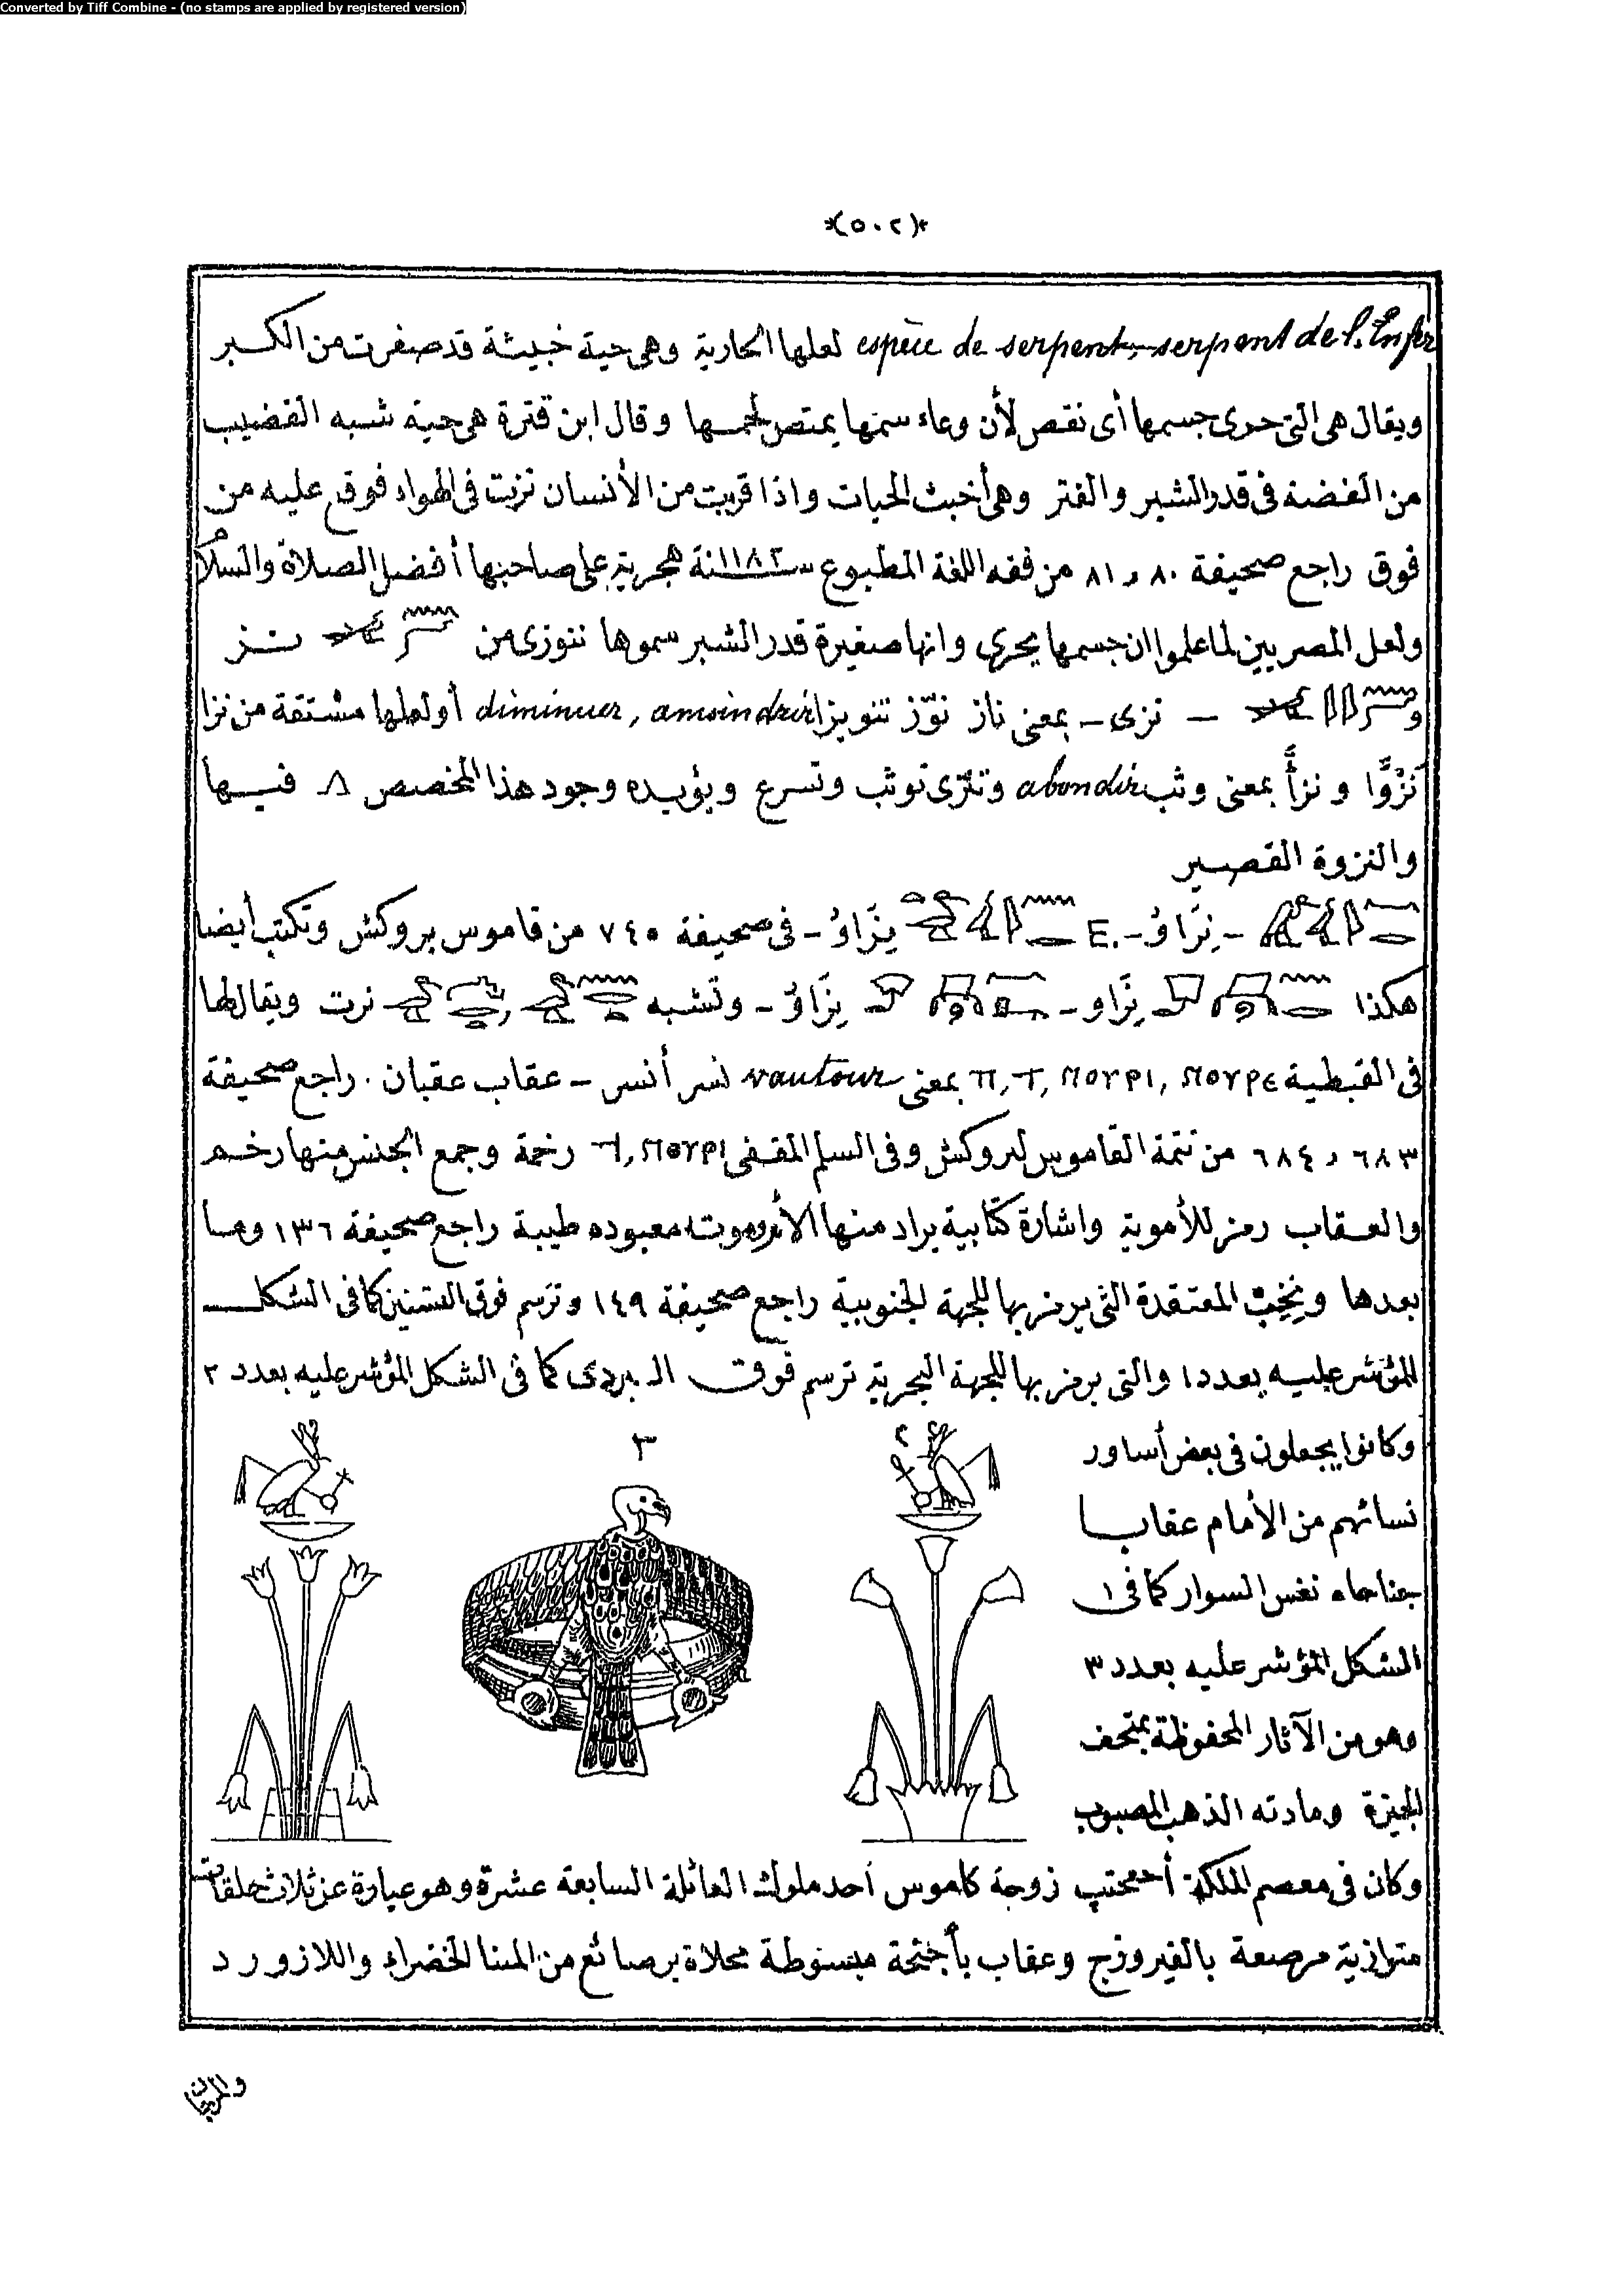 Converted by Tiff Combine - (no stamps are applied by registered version)
*(٥٠٢)*
espèce de serpent, serpent de l'Enfer لعلها الحارية وهى حية خبيثة قد صغرت من الكبر
ويقال هى التى حرى جسمها أى نقص لأن وعاء سمها يمتص لحمها وقال ابن قترة هى حية شبه القضيب
من الفضة فى قدر الشبر والفتر وهى أخبث الحيات واذا قربت من الأنسان نزت فى الهواء فوقع عليه من
فوق راجع صحيفة ٨٠ و ٨١ من فقه اللغة المطبوع سنة ١١٨٢ هجرية على صاحبها أفضل الصلاة والسلام
ولعل المصريين لما علموا ان جسمها يحرى وانها صغيرة قدر الشبر سموها ننوزى من نز
و — نزى — بمعنى ناز نوّز تنويزا diminuer, amoindrir أو لعلها مشتقة من نزا
نَزْوًا و نزأ بمعنى وثب abondir وتنزّى توثب وتسرع ويؤيده وجود هذا المخصص فيها
والنزوة القصير
- نِرَاوُ - .E نِرَاوُ - فى صحيفة ٧٤٠ من قاموس بروكش وتكتب أيضا
هكذا نِرَاو - نِرَاوُ - وتشبه , نرت ويقال لها
فى القبطية ⲡ, ⲧ, ⲛⲟⲩⲣⲓ, ⲛⲟⲩⲣⲉ بمعنى vautour نسر أنسر - عقاب عقبان . راجع صحيفة
٦٨٣ و ٦٨٤ من تتمة القاموس لبروكش وفى السلم المقفى ϯ, ⲛⲟⲩⲣⲓ رخمة وجمع الجنس منها رخم
والعقاب رمز للأموية واشارة كتابية يراد منها الأم وموت معبودة طيبة راجع صحيفة ١٣٦ وما
بعدها ونخب المعتقدة التى يرمز بها للجهة الجنوبية راجع صحيفة ١٤٩ وترسم فوق البشنين كما فى الشكل
المؤشر عليه بعدد ١ والتى يرمز بها للجهة البحرية ترسم فوق البردى كما فى الشكل المؤشر عليه بعدد ٢
وكانوا يجعلون فى بعض أساور
نسائهم من الأمام عقابا
جناحاه نفس السوار كما فى
الشكل المؤشر عليه بعدد ٣
وهو من الآثار المحفوظة بمتحف
الجيزة ومادته الذهب المصبوب
١
٣
٢
وكان فى معصم الملكة أححتب زوجة كاموس أحد ملوك العائلة السابعة عشرة وهو عبارة عن ثلاث حلقات
متوازية مرصعة بالفيروزج وعقاب بأجنحة مبسوطة محلاة برصائع من المينا الخضراء واللازورد
والمرجان